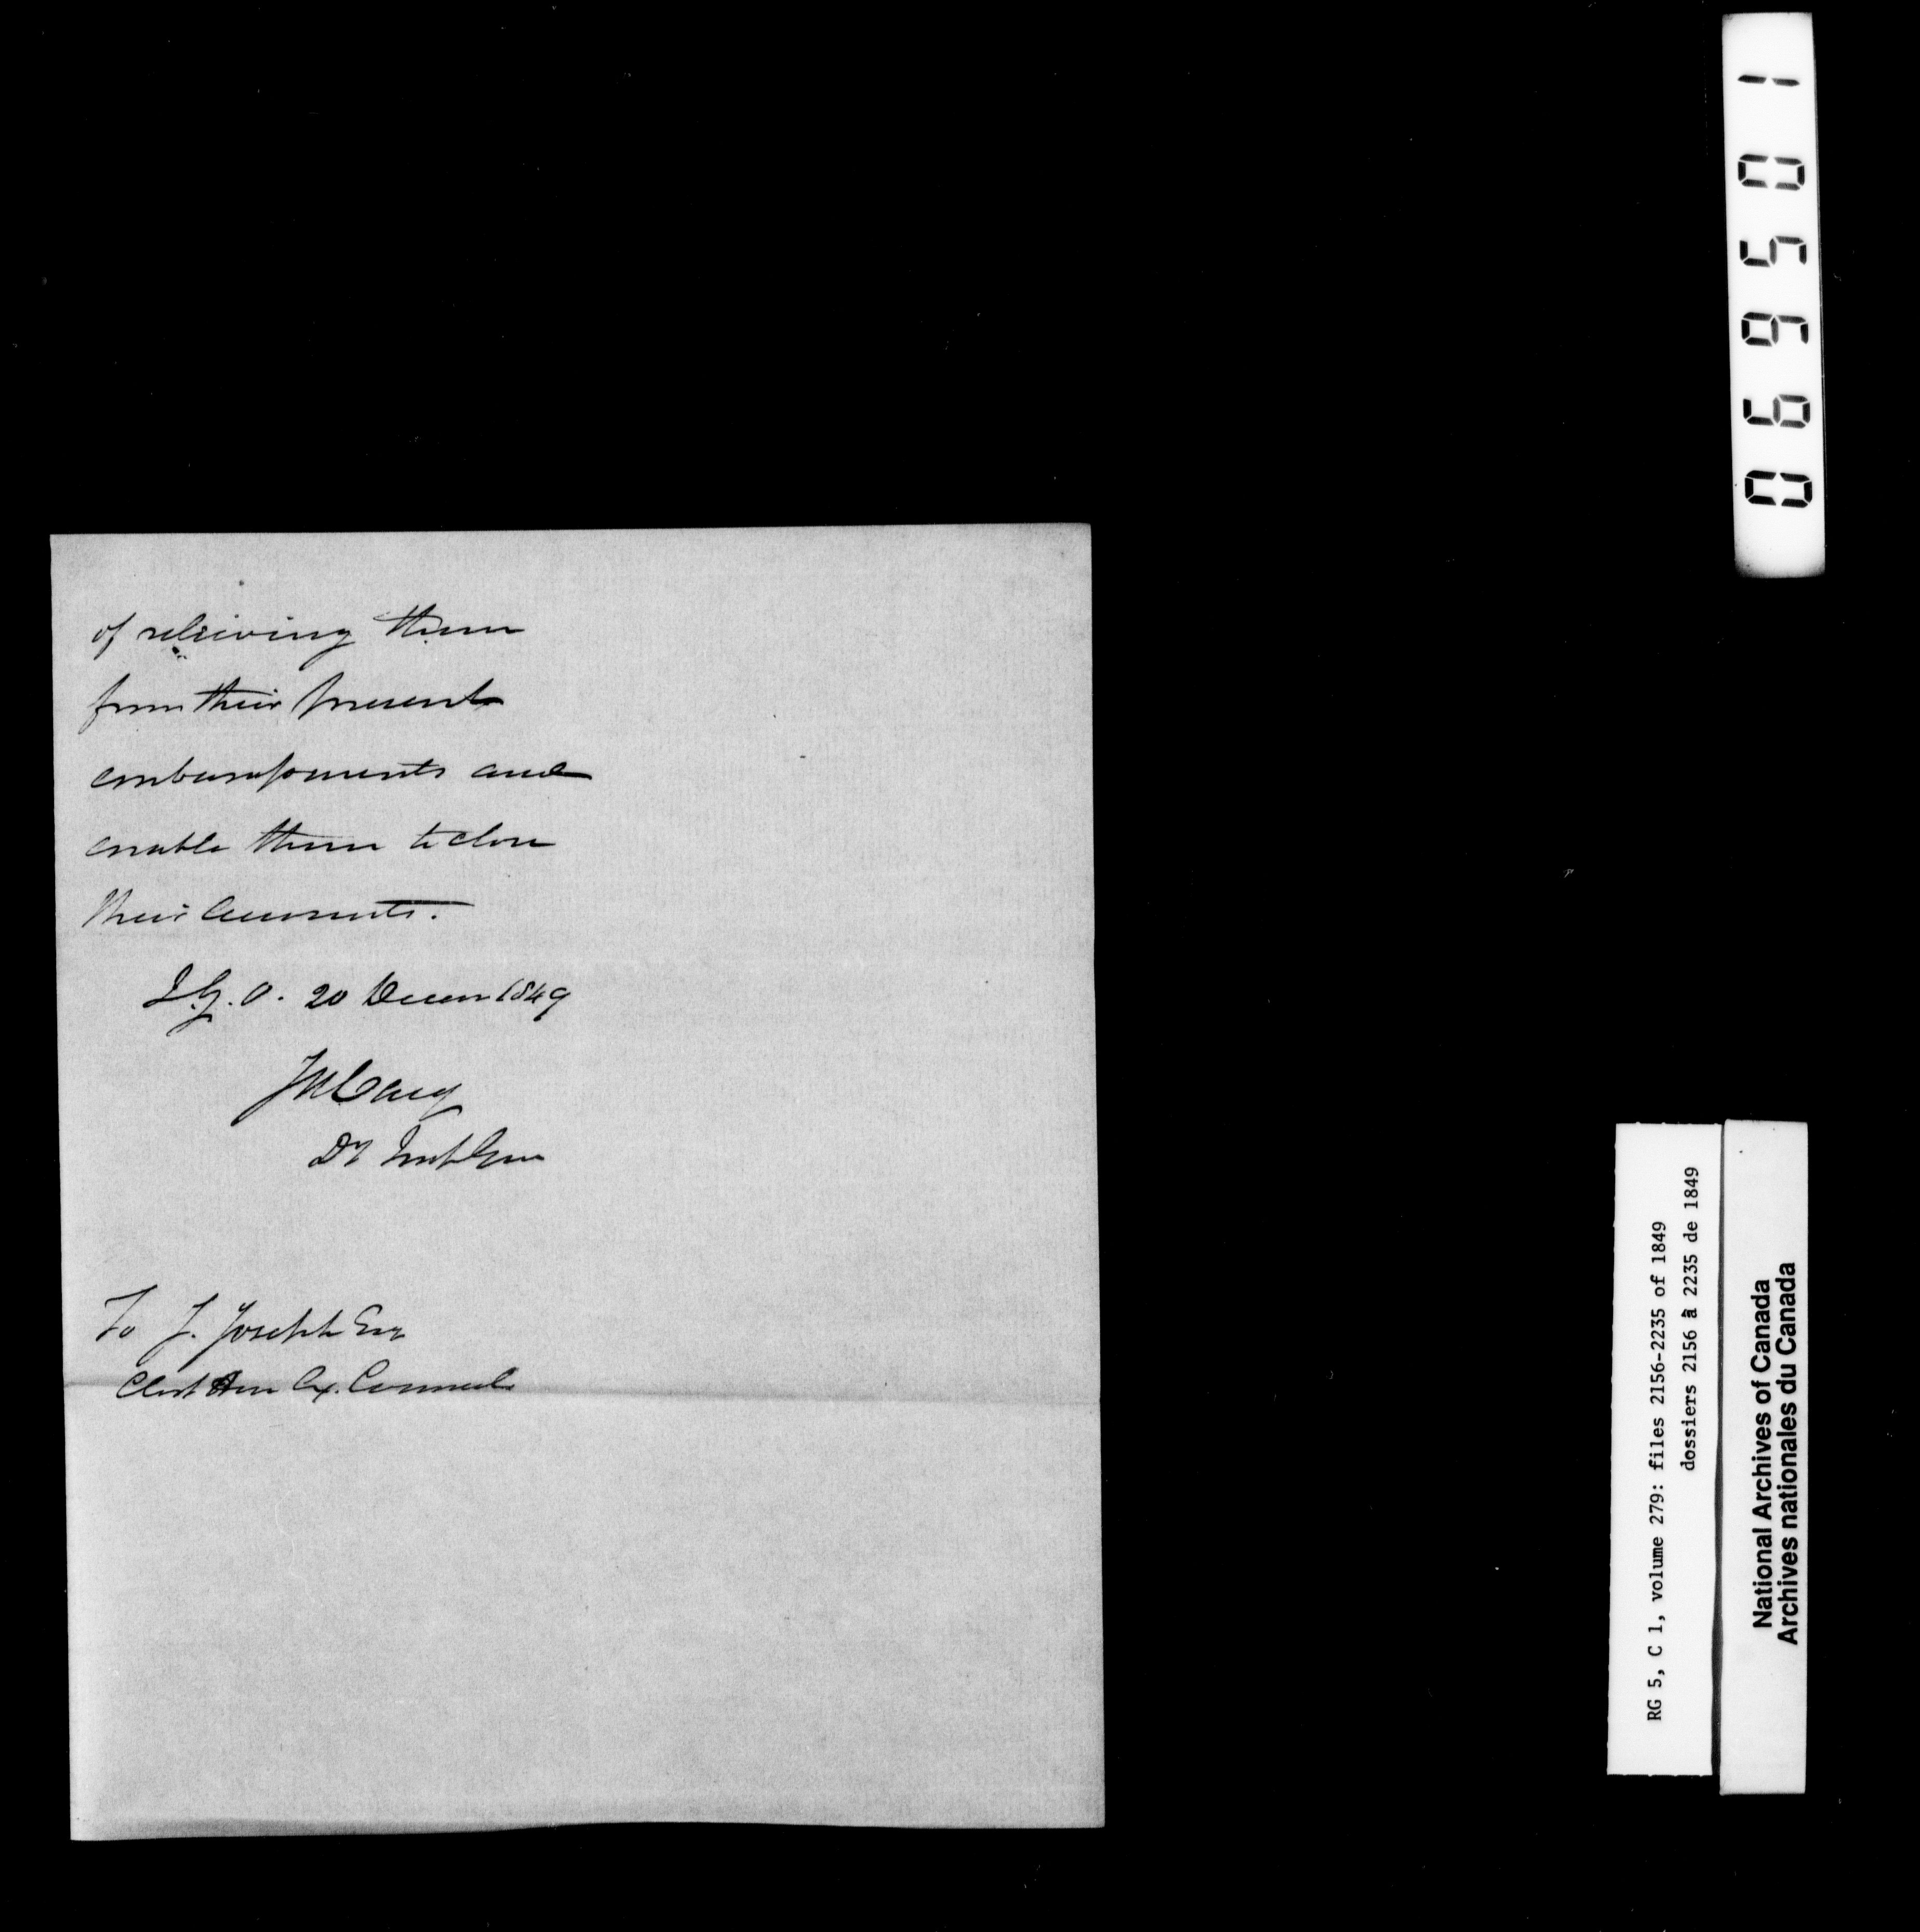 of relieving them
from their present
embarrassments and
enable them to close
their accounts.
I.G.O. 20 Decem 1849
J M Cary
Dy Inspr Gen
To J. Joseph Esq
Clerk Hon Ex. Council
069501
RG 5, C 1, volume 279: files 2156-2235 of 1849
dossiers 2156 à 2235 de 1849
National Archives of Canada
Archives nationales du Canada